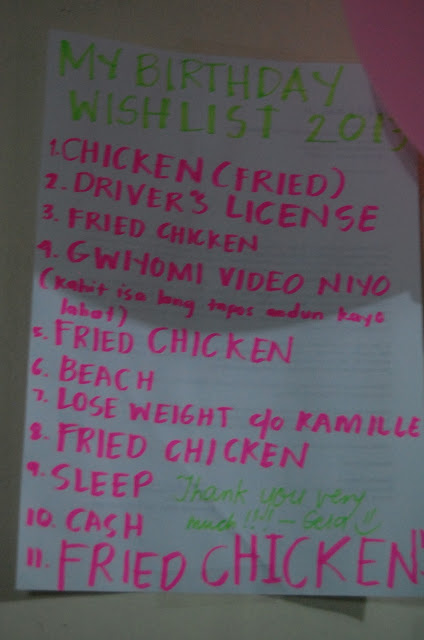 MY BIRTHDAY
WISHLIST 2013
1. CHICKEN (FRIED)
2. DRIVER'S LICENSE
3. FRIED CHICKEN
4. GWIYOMI VIDEO NIYO
(kahit isa lang tapos andun kayo
lahat)
5. FRIED CHICKEN
6. BEACH
7. LOSE WEIGHT c/o KAMILLE
8. FRIED CHICKEN
9. SLEEP
10. CASH
Thank you very
much!!!! - Gela
11. FRIED CHICKEN!